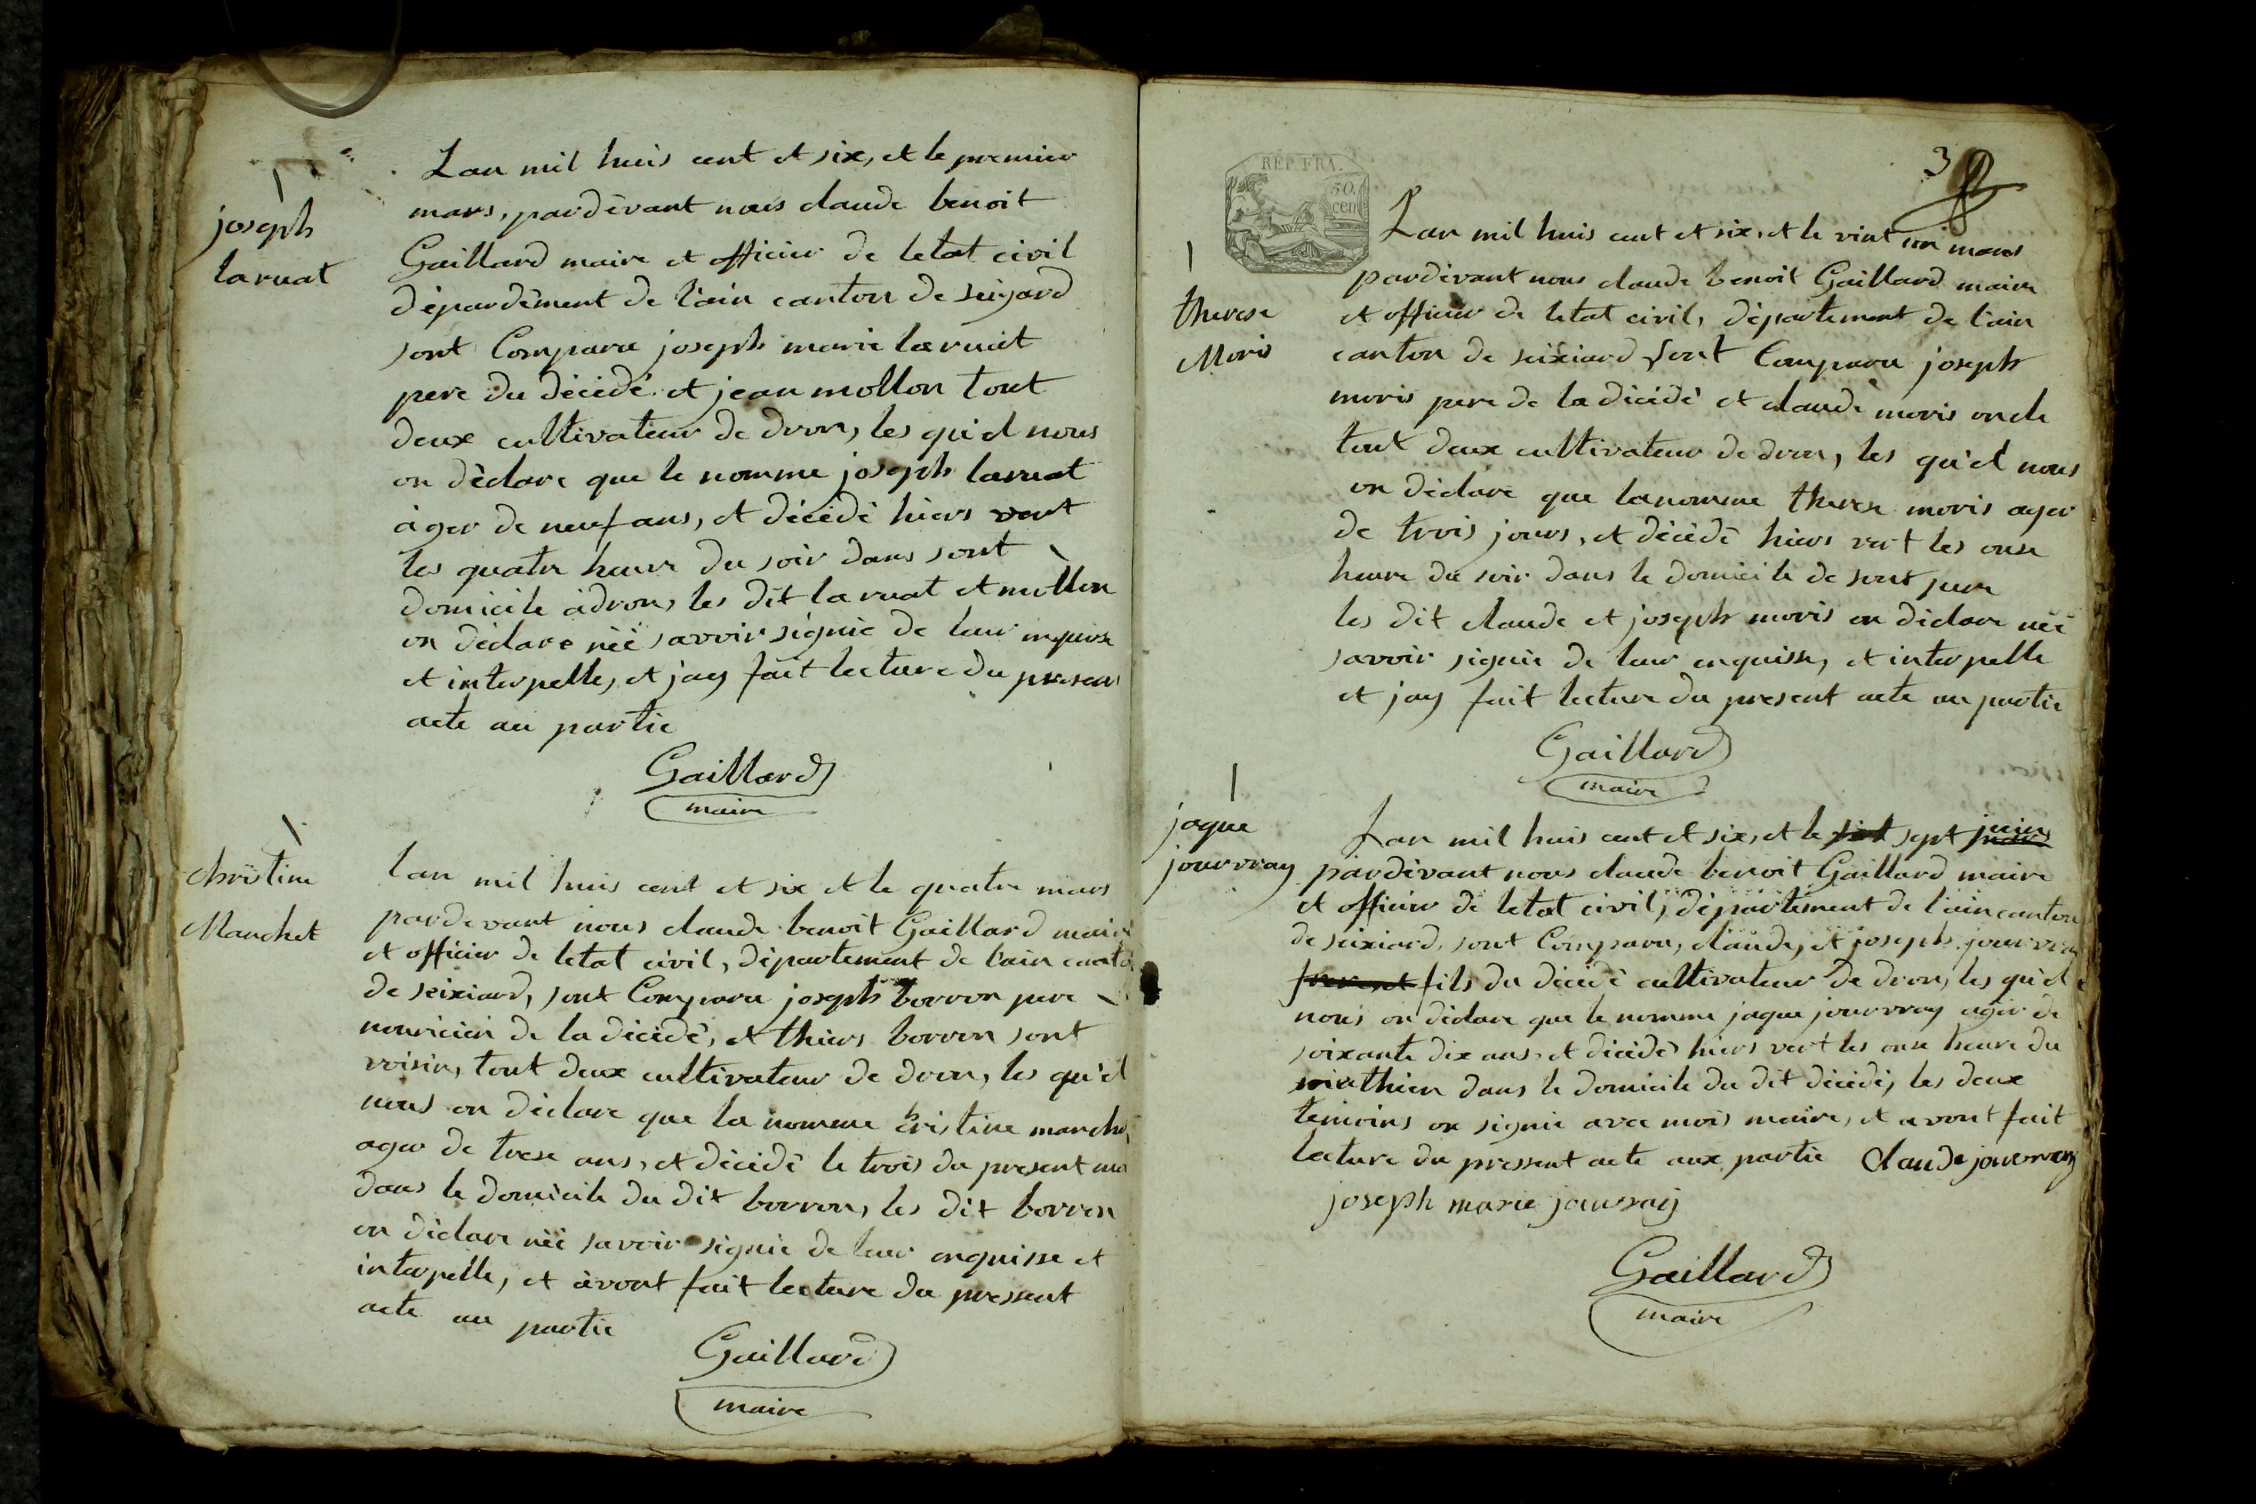 joseph
laruat
Lan mil huis cent et six, et le premier
mars, pardevant nous claude benoit
Gaillard maire et officier de letat civil
dépardèment de l'ain canton de seigard
sont Comparu joseph marie laruat
pere du décédé et jean mollon tout
deux cultivateur de dron, les qu'el nous
on dèclare que le nomme joseph laruat
àger de neuf ans, et décédé hiers vert
les quatre heure du soir dans sont
domicile àdron, les dit laruat et mollon
on déclare néé savoir signié de leur
et interpelle, et jay fait lecture du presant
acte au partie
Gaillard
maire
christine
Manchet
lan mil huis cent et six et le quatre mars
pardevant nous claude benoit Gaillard maire
et officier de letat civil, département de l'ain
de seixiard, sont Comparu joseph borron pere
nouricier de la décédé, et thiers borron sont
voisin, tout deux cultivateur de dron, les qu'el
nous on déclare que la nomme christine
ager de trese ans, et décédé le trois du present
dans le domicile du dit borron, les dit borron
on déclare néé savoir signié de leur enquisse et
interpelle, et àvont fait lecture du pressent
acte au partie
Gaillard
maire
REP. FRA.
50.
cen.
3
therese
Moris
Lan mil huis cent et six, et le vint un mars
pardevant nous claude benoit Gaillard maire
et officier de letat civil, département de l'ain
canton de seixiard sont Comparu joseph
moris pere de la décédé et claude moris oncle
tout deux cultivateur de dron, les qu'el nous
on déclare que lanomme therese moris ager
de trois jours, et décédé hiers vert les onse
heure du soir dans le domicile de sont pere
les dit claude et joseph moris on déclare néé
savoir signié de leur enquisse, et interpelle
et jay fait lecture du present acte au partie
Gaillard
maire
jaque
jourvray
Lan mil huis cent et six, et le sept juin
pardevant nous claude benoit Gaillard maire
et officier de letat civil, département de l'ain canton
de seixiard, sont Comparu, claude, et joseph jourvray
fils du décédé cultivateur de dron, les qu'el
nous on déclare que le nomme jaque jourvray ager de
soixante dix ans, et décédé hiers vert les onse heure du
mathien dans le domicile du dit décédé, les deux
temoins on signié avec mois maire, et avont fait
lecture du pressent acte aux partie claude jouvray
joseph marie jouvray
Gaillard
maire